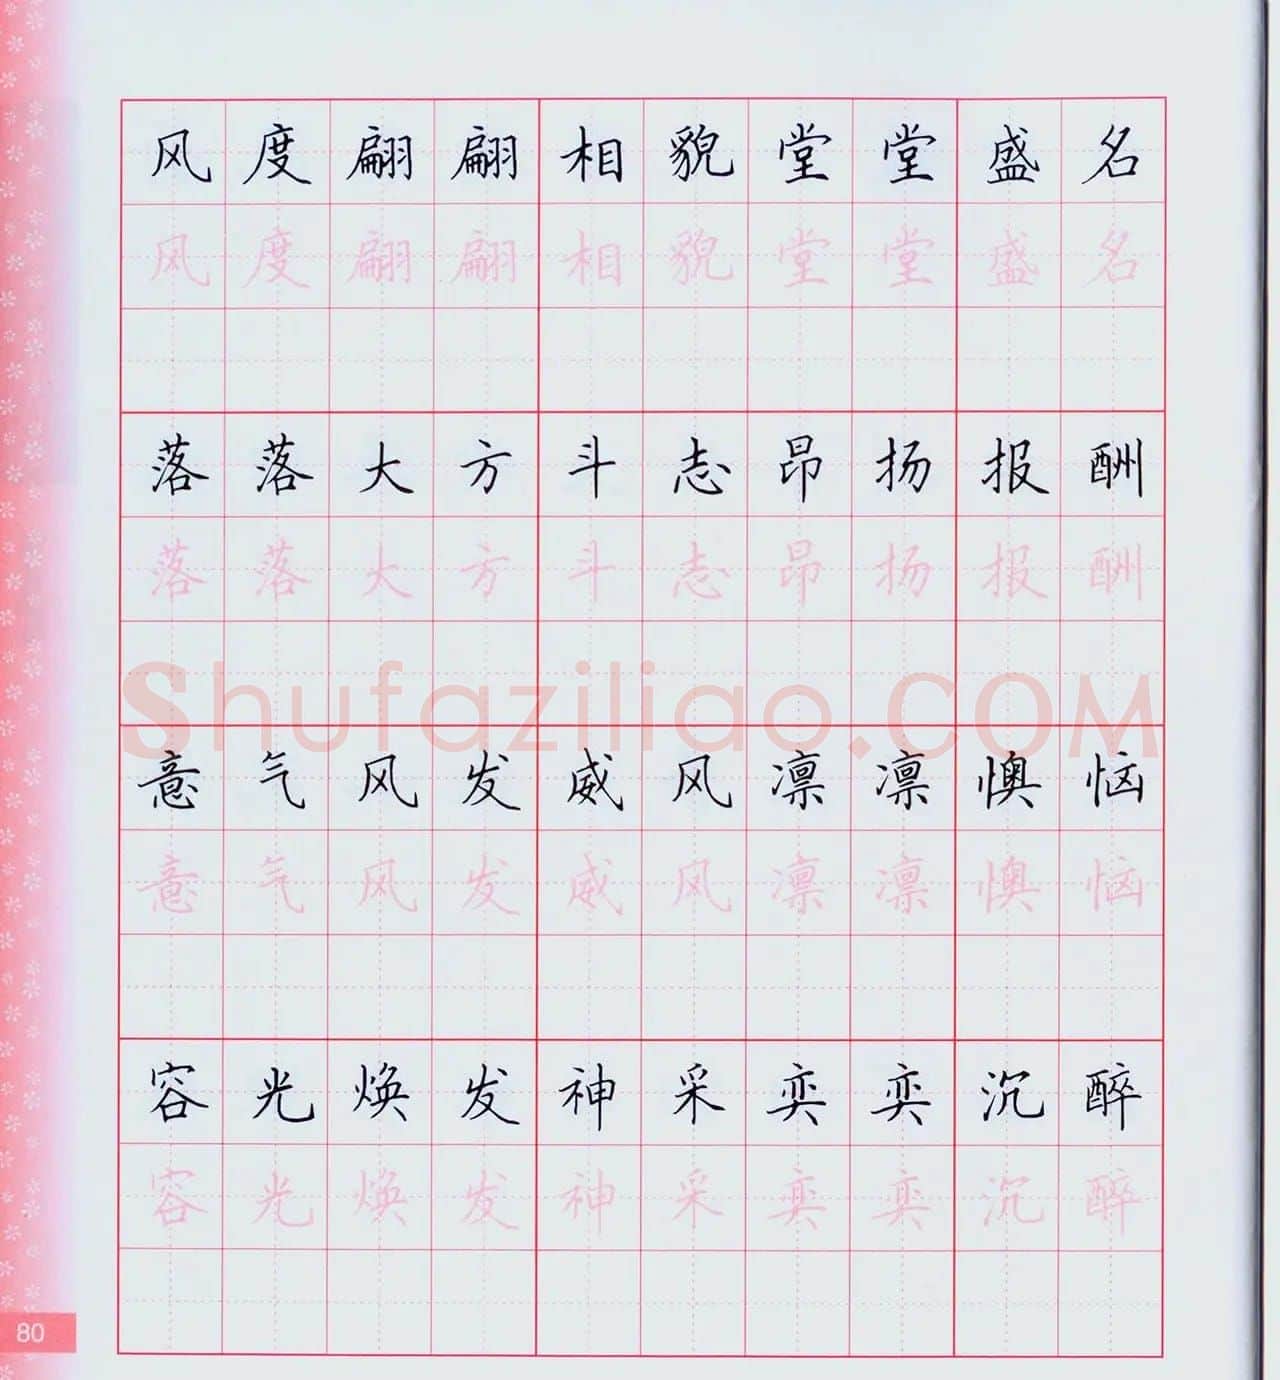 风度翩翩相貌堂堂盛名
风度翩翩相貌堂堂盛名
落落大方斗志昂扬报酬
落落大方斗志昂扬报酬
Shufaziliao.COM
意气风发威风凛凛懊恼
意气风发威风凛凛懊恼
容光焕发神采奕奕沉醉
容光焕发神采奕奕沉醉
80